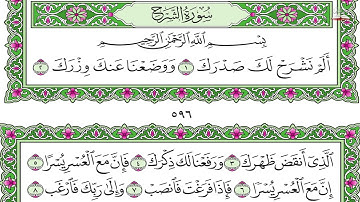 سُورَةُ الشَّرْحِ
بِسْمِ اللَّهِ الرَّحْمَٰنِ الرَّحِيمِ
أَلَمْ نَشْرَحْ لَكَ صَدْرَكَ ١ وَوَضَعْنَا عَنكَ وِزْرَكَ ٢
٥٩٦
الَّذِي أَنقَضَ ظَهْرَكَ ٣ وَرَفَعْنَا لَكَ ذِكْرَكَ ٤ فَإِنَّ مَعَ الْعُسْرِ يُسْرًا ٥
إِنَّ مَعَ الْعُسْرِ يُسْرًا ٦ فَإِذَا فَرَغْتَ فَانصَبْ ٧ وَإِلَىٰ رَبِّكَ فَارْغَب ٨